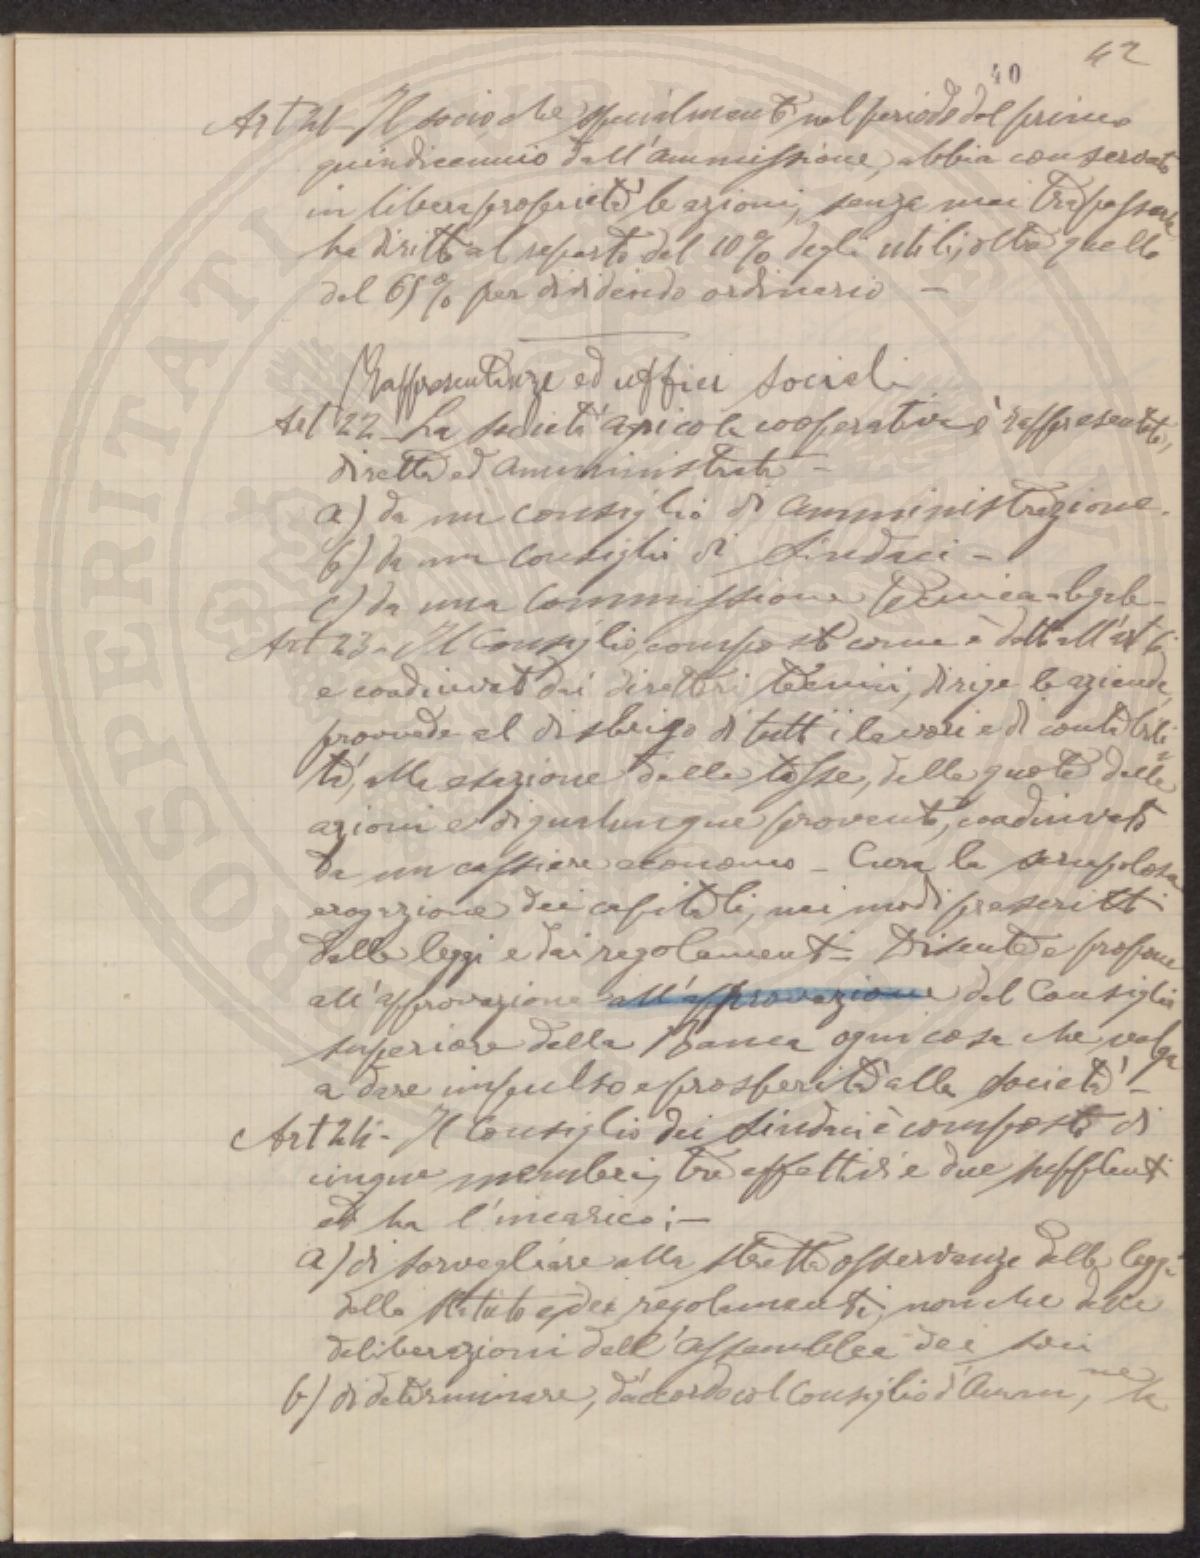 42
40
Art 21 - Il socio, che specialmente nel periodo del primo
quindicennio dall'ammissione, abbia conservato
in libera proprietà le azioni, senza mai trapassarle
ha diritto al reparto del 10% degli utili, oltre quello
del 65% per dividendo ordinario -
Rappresentanze ed uffici sociali
Art 22 - La società agricola cooperativa è rappresentata,
diretta ed amministrata -
a) da un consiglio di amministrazione.
b) da un Consiglio di Sindaci -
c) da una Commissione tecnica-legale -
Art 23 - Il Consiglio, composto come è detto all'art
e coadiuvato dai direttori tecnici, dirige le aziende,
provvede al disbrigo di tutti i lavori e di contabili=
tà, alla esazione delle tasse, delle quote delle
azioni e di qualunque provento, coadiuvato
da un cassiere economo - Cura la scrupolosa
erogazione dei capitali, nei modi prescritti
dalle leggi e dai regolamenti - Discute e propone
all'approvazione all'approvazione del Consiglio
superiore della Banca ogni cosa che valga
a dare impulso e prosperità alla società -
Art 24 - Il Consiglio dei Sindaci è composto di
cinque membri, tre effettivi e due supplenti
ed ha l'incarico; -
a) di sorvegliare alla stretta osservanza delle leggi
dello Statuto e dei regolamenti, nonche delle
deliberazioni dell'assemblea dei soci
b) di determinare, d'accordo col Consiglio d'Amm,ne la